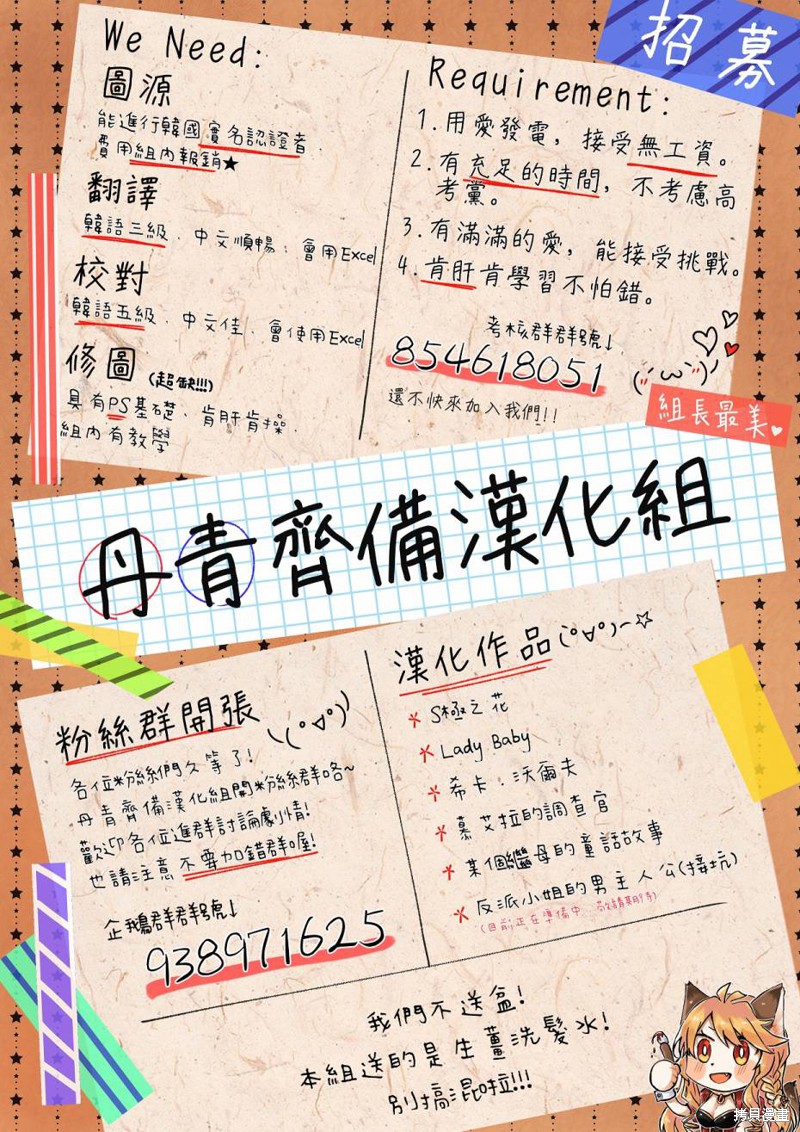 招募
We Need:
圖源
能進行韓國實名認證者.
費用組內報銷★
翻譯
韓語三級、中文順暢、會用Excel
校對
韓語五級、中文佳、會使用Excel
修圖(超缺!!!)
具有PS基礎、肯肝肯操、
組內有教學
Requirement:
1.用愛發電，接受無工資。
2.有充足的時間，不考慮高
考黨。
3.有滿滿的愛，能接受挑戰。
4.肯肝肯學習不怕錯。
考核群群號↓
854618051
還不快來加入我們!!
組長最美♥
丹青齊備漢化組
粉絲群開張
各位粉絲們久等了!
丹青齊備漢化組開粉絲群咯~
歡迎各位進群討論劇情!
也請注意不要加錯群喔!
企鵝群群號↓
938971625
漢化作品(°∀°)~☆
S極之花
Lady Baby
希卡·沃爾夫
慕艾拉的調查官
某個繼母的童話故事
反派小姐的男主人公(接坑)
(目前正在準備中，敬請期待)
我們不送盒!
本組送的是生薑洗髮水!
別搞混啦!!!
拷貝漫畫